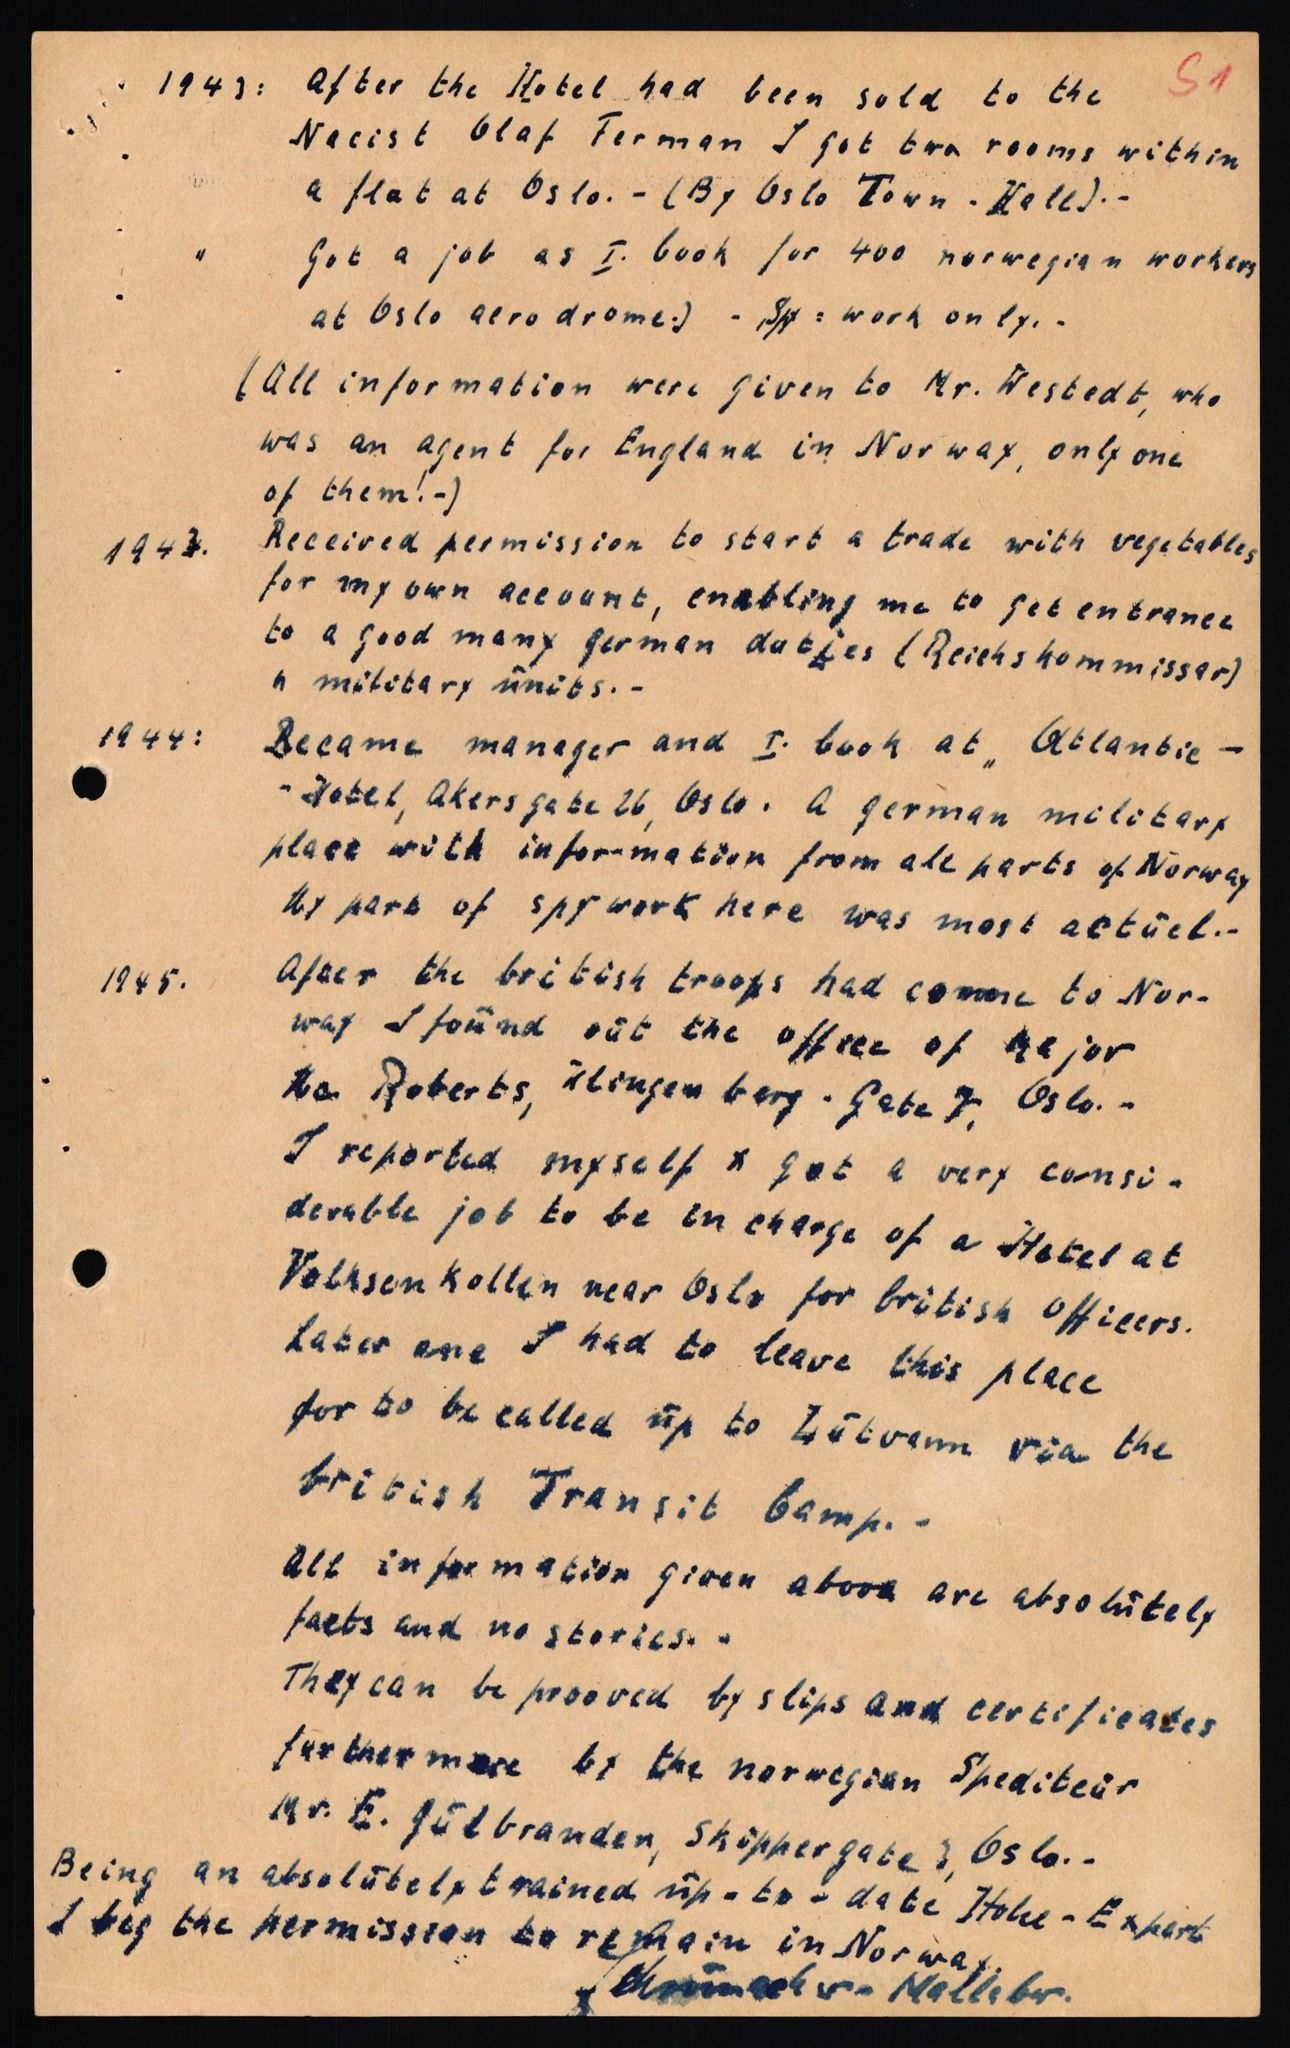 S1
1943: After the Hotel had been sold to the
Nacist Olaf Ferman I got two rooms within
a flat at Oslo. - (By Oslo Town - Hall). -
" Got a job as I. book for 400 norwegian workers
at Oslo aerodrome.) - Spy = work only. -
(All information were given to Mr. Westedt, who
was an agent for England in Norway, only one
of them! -)
1943. Received permission to start a trade with vegetables
for my own account, enabling me to get entrance
to a good many german duties (Reichskommissar)
" military units. -
1944: Became manager and I. book at „Atlantic -
- Hotel, Akersgate 26, Oslo. A german military
place with infor-mation from all parts of Norway
My part of spy work here was most actuel. -
1945. After the british troops had comme to Nor-
way I found out the office of Major
Roberts, Klingenberg - Gate 7, Oslo. -
I reported myself & got a very consi-
derable job to be in charge of a Hotel at
Volksenkollen near Oslo for british officers.
Later one I had to leave this place
for to be called up to Lutvann via the
british Transit Camp. -
All information given above are absolutely
facts and no stories. -
They can be prooved by slips and certificates
furthermore by the norwegian Spediteur
Mr. E. Gulbranden, Skippergate 3, Oslo. -
Being an absolutely trained up-to-date Hotel-Expert
I beg the permission to remain in Norway.